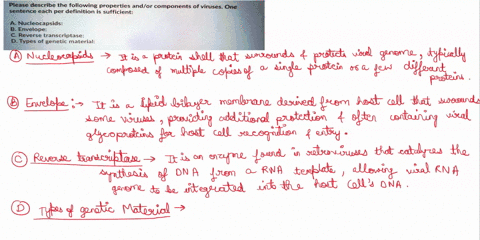 Please describe the following properties and/or components of viruses. One
sentence each per definition is sufficient:
A. Nucleocapsids:
B. Envelope:
C. Reverse transcriptase:
D. Types of genetic material:
A Nucleocapsids → It is a protein shell that surrounds & protects viral genome, typically
composed of multiple copies of a single protein or a few different
proteins.
B Envelope :→ It is a lipid bilayer membrane derived from host cell that surrounds
some viruses, providing additional protection & often containing viral
glycoproteins for host cell recognition & entry.
C Reverse transcriptase → It is an enzyme found in retroviruses that catalyzes the
synthesis of DNA from a RNA template, allowing viral RNA
genome to be integrated into the host cell's DNA.
D Types of genetic Material →